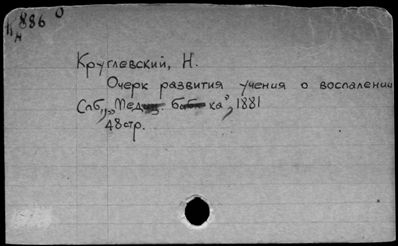 886 0
Круглевский, Н.
Очерк развития учения о воспалении
Спб, "Мед. б-ка", 1881
48 стр.